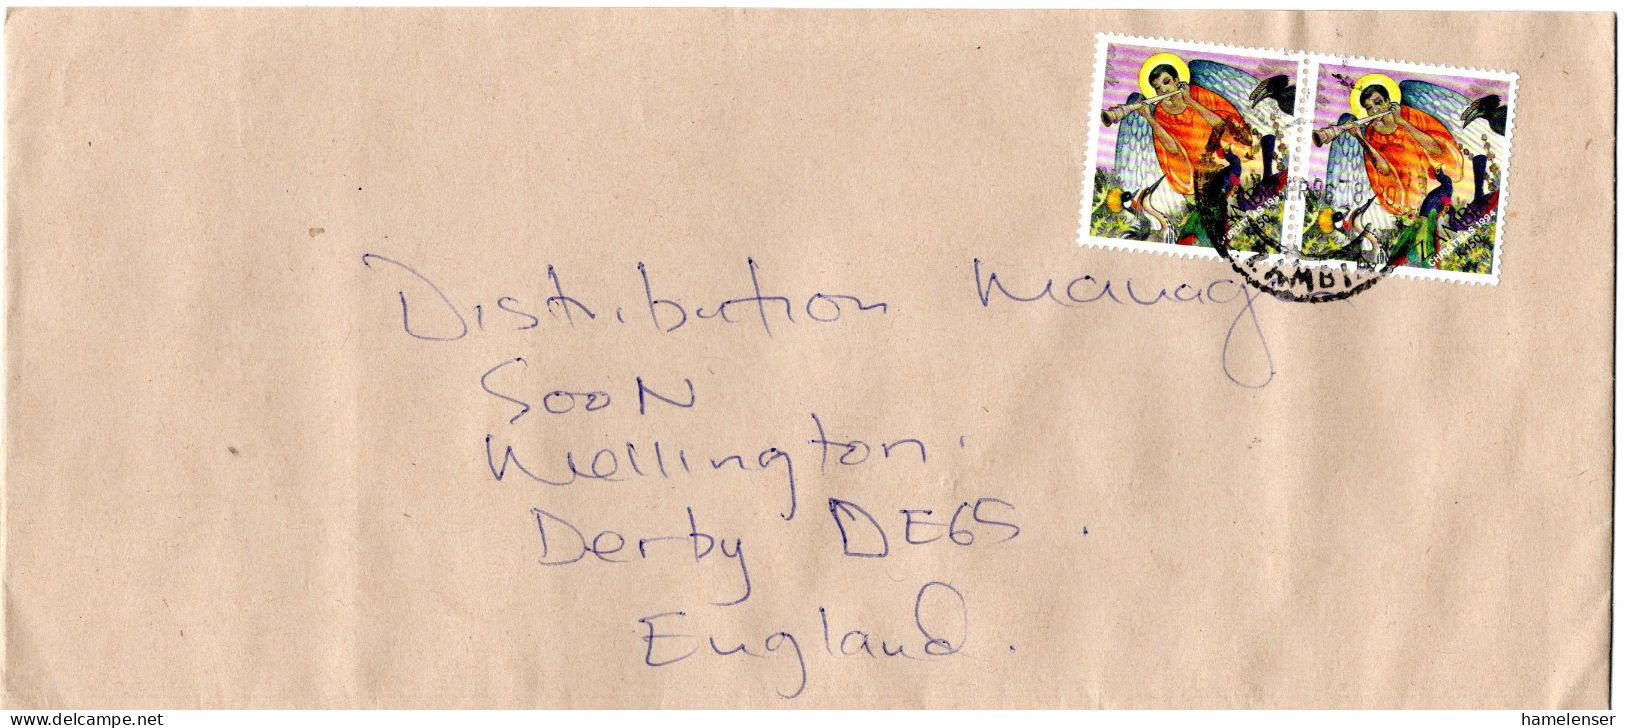 ZAMBIA
CHRISTMAS 1994
K150
ZAMBIA
CHRISTMAS 1994
K150
ZAMBIA
Distribution Manager
SooN
Wellington.
Derby DE65.
England.
www.delcampe.net
hamelenser